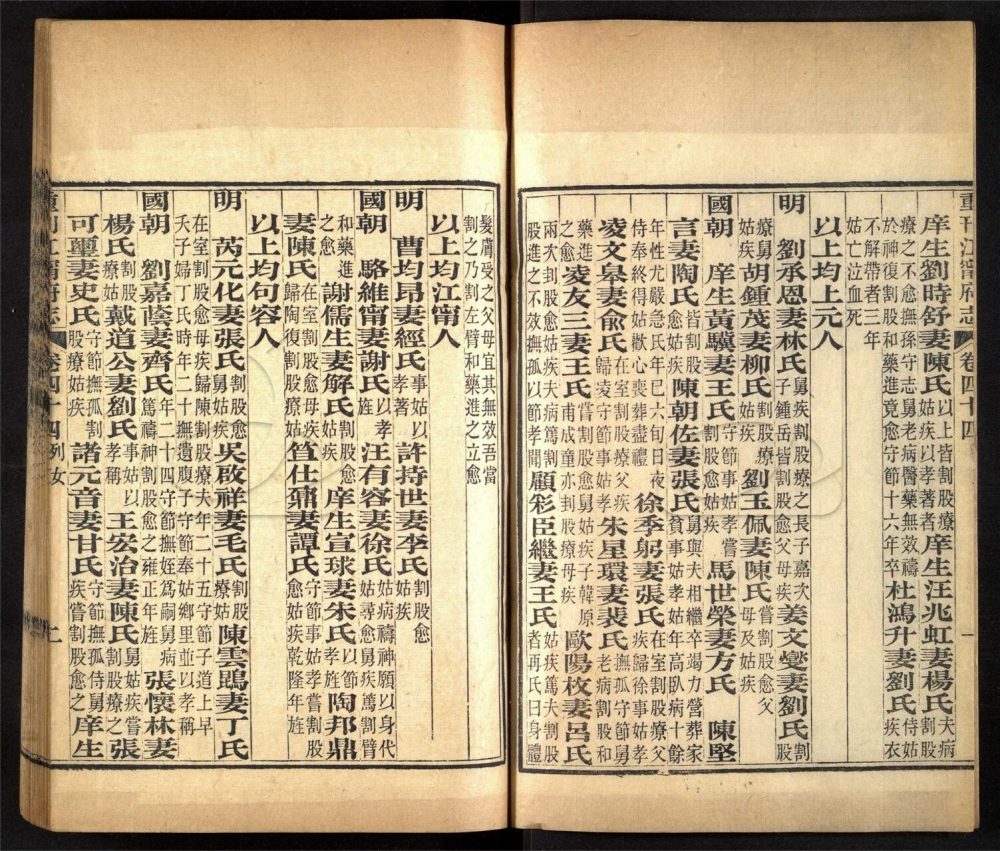 重刊江甯府志 卷四十四
庠生劉時舒妻陳氏以上皆割股療姑疾以孝著者庠生汪兆虹妻楊氏夫病割股
療之不愈撫孫守志舅老病醫藥無效禱於神復割股和藥進竟愈守節十六年卒杜鴻升妻劉氏侍姑疾衣
不解帶者三年姑亡泣血死
以上均上元人
明 劉承恩妻林氏舅疾割股療之長子嘉次子鍾岳皆割股愈父母疾姜文燮妻劉氏割股
療舅姑疾胡鍾茂妻柳氏割股療姑疾劉玉佩妻陳氏嘗割股愈父母及姑疾
國朝 庠生黃驥妻王氏守節事姑孝嘗割股愈姑疾馬世榮妻方氏 陳堅
言妻陶氏皆割股愈姑疾陳朝佐妻張氏舅與夫相繼卒竭力營葬家貧事姑孝姑年高臥病十餘
年性尤嚴急氏年已六旬日夜侍奉終得姑歡心喪葬盡禮徐季躬妻張氏在室割股療父疾歸徐事姑孝
凌文皋妻俞氏在室割股療父疾歸凌守節事姑孝朱星環妻裴氏撫孤守節舅姑老病割股和
藥進之愈凌友三妻王氏嘗割股愈舅姑疾子韓原甫成童亦刲股療母疾歐陽枚妻呂氏
兩次刲股愈姑疾夫病割股進不效撫孤以節孝聞顧彩臣繼妻王氏姑疾篤夫割股者再氏曰身體
髮膚受之父母宜其無效吾當割之乃割左臂和藥進之立愈
以上均江甯人
明 曹均昂妻經氏事姑以孝著許持世妻李氏割股愈姑疾
國朝 駱維甯妻謝氏以孝旌汪有容妻徐氏姑病禱神願以身代姑尋愈舅疾篤割臂
和藥進之愈謝儒生妻解氏割股愈姑疾庠生宣球妻朱氏以節孝旌陶邦鼎
妻陳氏在室割股愈母疾歸陶復割股療姑笪仕鼐妻譚氏守節事姑孝嘗割股愈姑疾乾隆年旌
以上均句容人
明 芮元化妻張氏割股愈舅疾吳啟祥妻毛氏割股療姑陳雲鵾妻丁氏
在室割股愈母疾歸陳割股療夫年二十五守節子道上早夭子婦丁氏時年二十撫遺腹子守節奉姑鄉里並以孝稱
國朝 劉嘉蔭妻齊氏年二十四守節撫姪爲嗣舅病篤禱神割股愈之雍正年旌張懷林妻
楊氏割股療姑戴道公妻劉氏事姑以孝稱王宏治妻陳氏舅姑疾嘗割股療之張
可璽妻史氏守節撫孤割股療姑疾諸元音妻甘氏守節撫孤侍姑疾嘗割股愈之庠生
重刊江甯府志 卷四十四列女